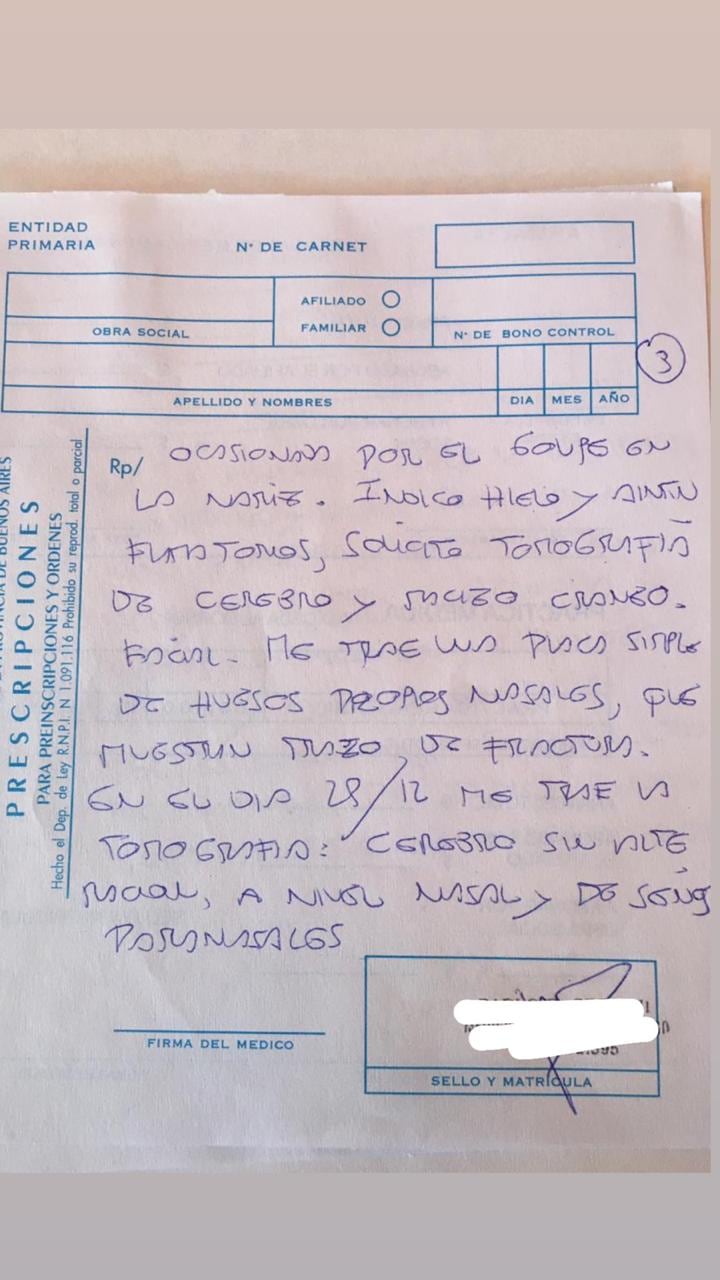 ENTIDAD
PRIMARIA
Nº DE CARNET
AFILIADO
FAMILIAR
OBRA SOCIAL
Nº DE BONO CONTROL
3
APELLIDO Y NOMBRES
DIA MES AÑO
PROVINCIA DE BUENOS AIRES
PRESCRIPCIONES
PARA PREINSCRIPCIONES Y ORDENES
Hecho el Dep. de Ley R.N.P.I. N 1.091.116 Prohibido su reprod. total o parcial
Rp/ OCASIONADA POR EL GOLPE EN
LA NARIZ. INDICO HIELO Y AINTIN
FLAMATORIOS, SOLICITO TOMOGRAFIA
DE CEREBRO Y MACIZO CRANEO.
FACIAL. ME TRAE UNA PLACA SIMPLE
DE HUESOS PROPIOS NASALES, QUE
MUESTRAN TRAZO DE FRACTURA.
EN EL DIA 28/12 ME TRAE LA
TOMOGRAFIA: CEREBRO SIN ALTE
RACION, A NIVEL NASAL Y DE SENOS
PARANASALES
FIRMA DEL MEDICO
SELLO Y MATRICULA